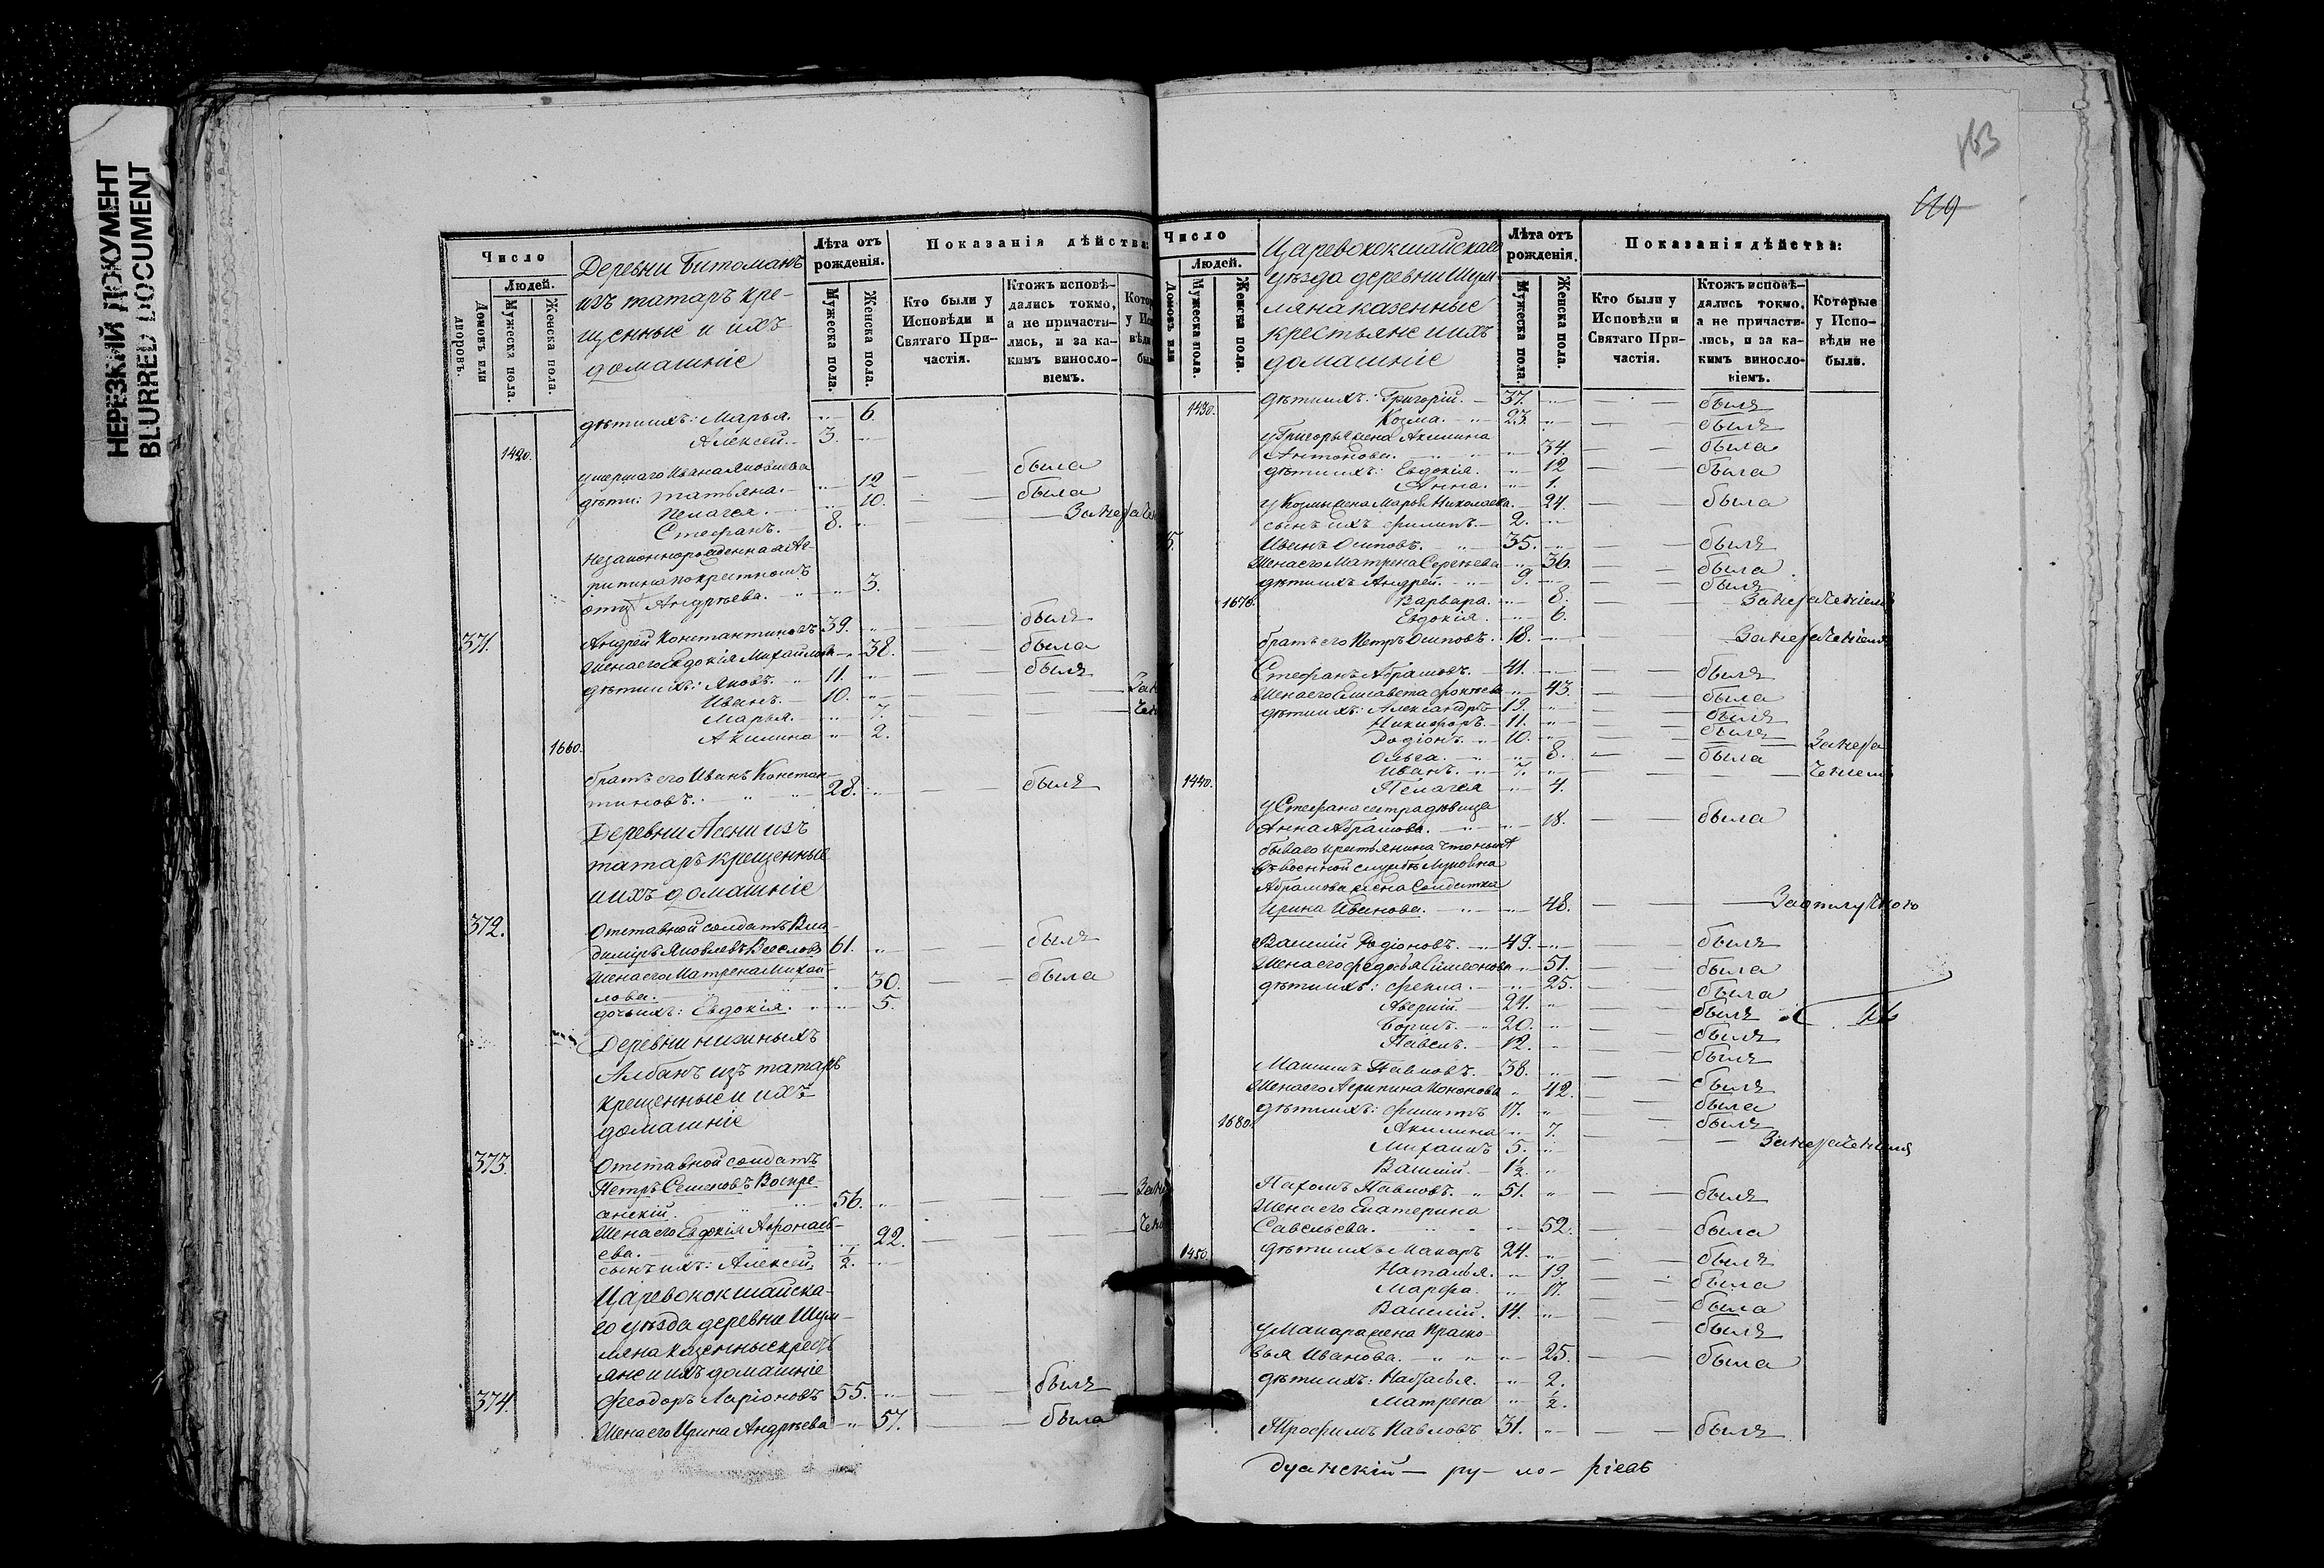 НЕРЕЗКИЙ ДОКУМЕНТ
BLURRED DOCUMENT
Число
Людей.
Домовъ или дворовъ.
Мужеска пола.
Женска пола.
Деревни Битоманъ
изъ татаръ кре-
щенные и ихъ
домашнiе
Лѣта отъ рожденiя.
Мужеска пола.
Женска пола.
Показанiя дѣйства:
Кто были у Исповѣди и Святаго При-частiя.
Ктожъ исповѣ-дались токмо, а не причасти-лись, и за ка-кимъ винословiемъ.
дѣти ихъ: Марья. 6.
Алексей. 3.
1420.
умершаго Ивана Яковлева
дѣти: Татьяна. 12 была
Пелагея. 10. была
Стефанъ. 8.
Незаконнорожденная Аг-
рипина по крестномъ
отцѣ Андрѣева. 3.
371. Андрей Константиновъ 39. былъ
Жена его Евдокiя Михайлова 38. была
дѣти ихъ: Яковъ. 11. былъ
Иванъ. 10.
Марья. 7.
1660. Акилина 2.
братъ его Иванъ Констан-
тиновъ. 28. былъ
Деревни Асени изъ
татаръ крещенные
и ихъ домашнiе
372. Отставной солдатъ Вла-
димiръ Яковлевъ 61. былъ
Жена его Матрена Михай-
лова. 30. была
дочь ихъ: Евдокiя. 5.
Деревни нижныхъ
Албанъ изъ татаръ
крещенные и ихъ
домашнiе
373. Отставной солдатъ
Петръ Семеновъ Воскре-
сенскiй 56.
Жена его Евдокiя Афонась-
ева. 22.
сынъ ихъ: Алексей 1/2.
Царевококшайска-
го уѣзда деревни Шум-
ляна казенные крестъ
яне и ихъ домашнiе
374. Феодоръ Ларiоновъ 55. былъ
Жена его Ирина Андрѣева 57. была
163
119
Число
Людей.
Домовъ или
Мужеска пола.
Женска пола.
Царевококшайскаго
уѣзда деревни Шум-
ляна казенные
крестьяне и ихъ
домашнiе
Лѣта отъ рожденiя.
Мужеска пола.
Женска пола.
Показанiя дѣйства:
Кто были у Исповѣди и Святаго При-частiя.
Ктожъ исповѣ-дались токмо, а не причасти-лись, и за ка-кимъ винослo-вiемъ.
Которые у Испо-вѣди не были.
1430. дѣти ихъ: Григорiй. 37. былъ
Козма. 23. былъ
у Григорья жена Акилина
Антонова. 34. была
дѣти ихъ: Евдокiя. 12 была
Анна. 1.
у Козмы жена Марья Николаева. 24. была
сынъ ихъ Филипъ. 2.
Иванъ Осиповъ. 35. былъ
Жена его Матрена Сергѣева 36. была
дѣти ихъ Андрей. 9. былъ
1670. Варвара. 8. За нераченiемъ
Евдокiя. 6.
братъ его Петръ Осиповъ. 18. За нераченiемъ
Стефанъ Абрамовъ. 41. былъ
Жена его Елисавета 43. была
дѣти ихъ: Александръ 19. былъ
Никифоръ. 11. былъ
Родiонъ. 10. За нера
Ольга. 8. была
Иванъ. 7. ченiемъ
1440. Пелагея 4.
у Стефана сестра дѣвица
Анна Абрамова. 18. была
бываго крестьянина что нынѣ
въ военной службѣ
Абрамова жена Солдатка
Ирина Иванова. 48. За отлучкою
Василiй Родiоновъ. 49. былъ
Жена его Федосья Симеонова 51. была
дѣти ихъ: Фекла. 25. была
Аверкiй. 24. былъ
Борисъ. 20. былъ
Павелъ. 12. былъ
Максимъ Павловъ. 38. былъ
Жена его Агрипина Кононова 42. была
дѣти ихъ: Филипъ 17. былъ
1680. Акилина 7. За нераченiемъ
Михаилъ 5.
Василiй. 1 1/2.
Пахомъ Павловъ. 51. былъ
Жена его Екатерина
Савельева. 52. была
1450. дѣти ихъ Макаръ 24. былъ
Наталья. 19. была
Марфа. 17. была
Василiй. 14. былъ
у Макара жена Праско-
вья Иванова. 25. была
дѣти ихъ: Наталья. 2.
Матрена 1/2.
Трофимъ Павловъ 31. былъ